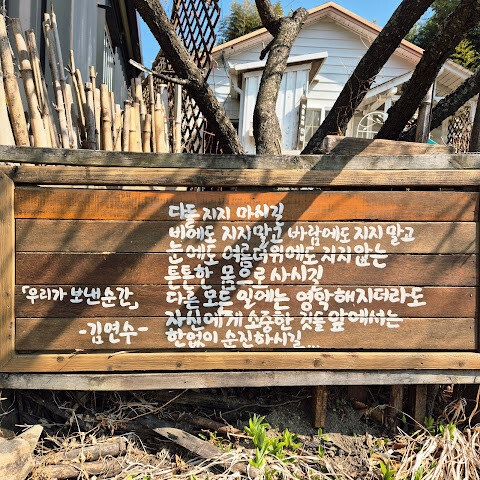 다들 지지 마시길
비에도 지지말고 바람에도 지지 말고
눈에도 여름더위에도 지지않는
튼튼한 몸으로 사시길
다른 모든 일에는 영악해지더라도
자신에게 소중한 것들 앞에서는
한없이 순진하시길...
「우리가 보낸순간」
-김연수-